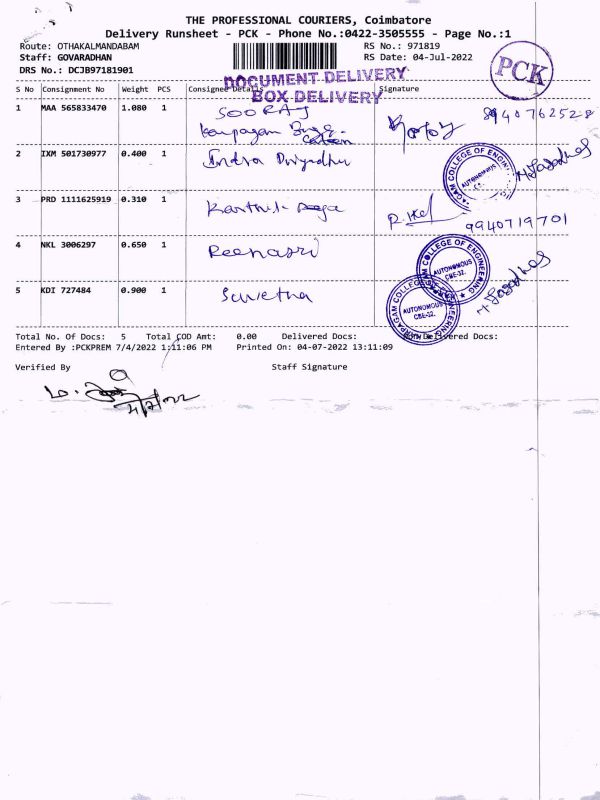 THE PROFESSIONAL COURIERS, Coimbatore
Delivery Runsheet - PCK - Phone No.:0422-3505555 - Page No.:1
Route: OTHAKALMANDABAM RS No.: 971819
Staff: GOVARADHAN RS Date: 04-Jul-2022
DRS No.: DCJB97181901
PCK
DOCUMENT DELIVERY
BOX DELIVERY
S No Consignment No Weight PCS Consignee Details Signature
1 MAA 565833470 1.080 1 SOORAJ 8940762528
2 IXM 501730977 0.400 1 Indra
AUTONOMOUS
3 PRD 1111625919 0.310 1 9940719701
4 NKL 3006297 0.650 1 Reenasri
COLLEGE OF ENGINEERING
AUTONOMOUS
CBE-32.
5 KDI 727484 0.900 1 Suvetha
KARPAGAM COLLEGE OF ENGINEERING
AUTONOMOUS
CBE-32.
Total No. Of Docs: 5 Total COD Amt: 0.00 Delivered Docs: Delivered Docs:
Entered By :PCKPREM 7/4/2022 1:11:06 PM Printed On: 04-07-2022 13:11:09
Verified By Staff Signature